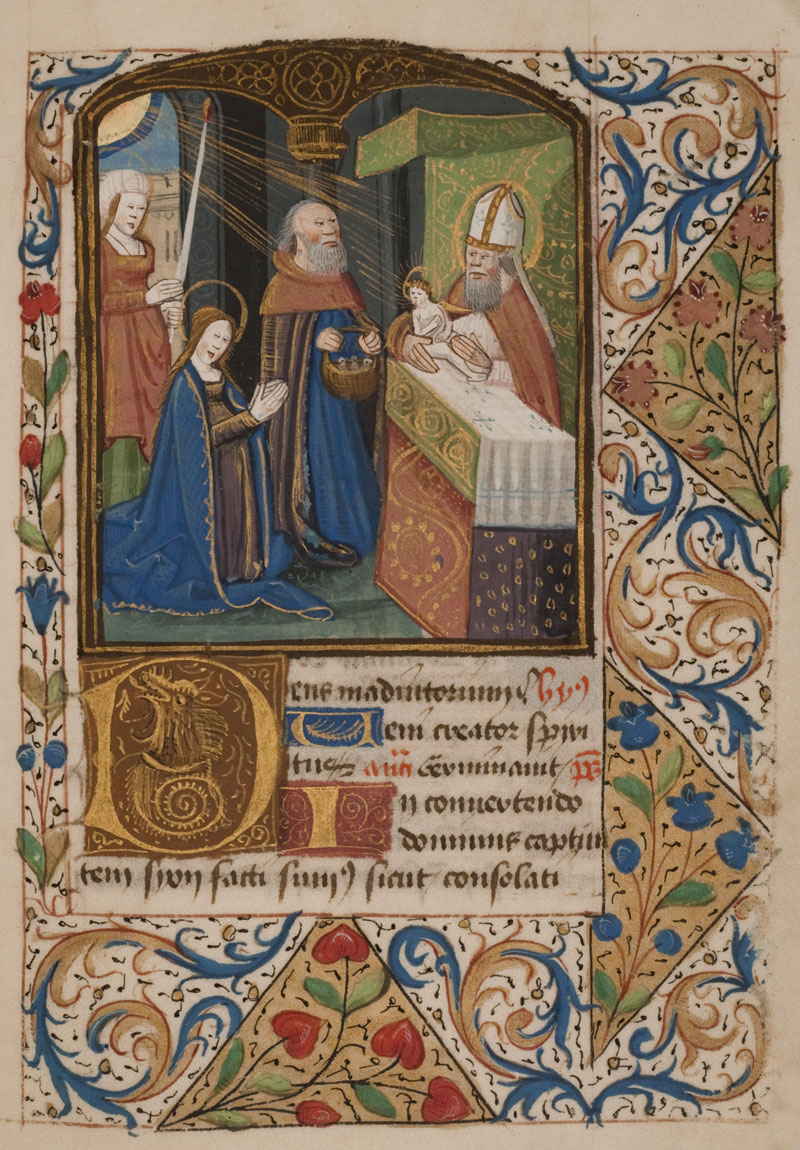 Deus in adiutorium. Hymus
Veni creator spiri
tus añ Germinavit ps
In convertendo
dominus captivi
tem syon facti sumus sicut consolati